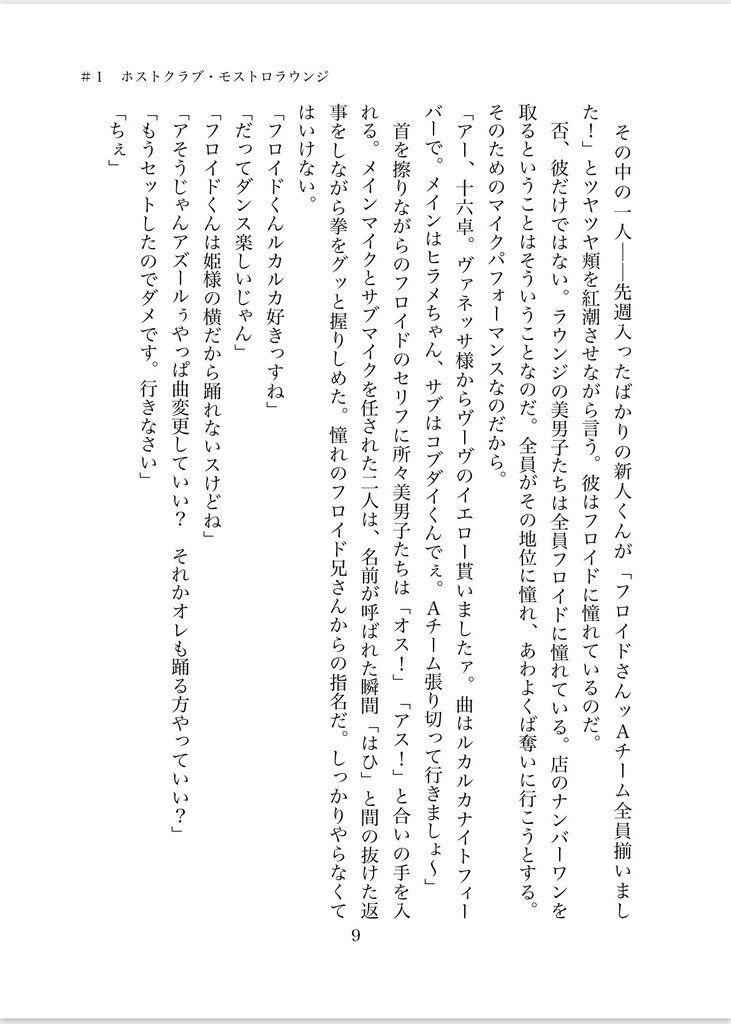 #1 ホストクラブ・モストロラウンジ
その中の一人――先週入ったばかりの新人くんが「フロイドさんッAチーム全員揃いまし
た!」とツヤツヤ頬を紅潮させながら言う。彼はフロイドに憧れているのだ。
否、彼だけではない。ラウンジの美男子たちは全員フロイドに憧れている。店のナンバーワンを
取るということはそういうことなのだ。全員がその地位に憧れ、あわよくば奪いに行こうとする。
そのためのマイクパフォーマンスなのだから。
「アー、十六卓。ヴァネッサ様からヴーヴのイエロー貰いましたァ。曲はルカルカナイトフィー
バーで。メインはヒラメちゃん、サブはコブダイくんでぇ。Aチーム張り切って行きましょ〜」
首を擦りながらのフロイドのセリフに所々美男子たちは「オス!」「アス!」と合いの手を入
れる。メインマイクとサブマイクを任された二人は、名前が呼ばれた瞬間「はひ」と間の抜けた返
事をしながら拳をグッと握りしめた。憧れのフロイド兄さんからの指名だ。しっかりやらなくて
はいけない。
「フロイドくんルカルカ好きっすね」
「だってダンス楽しいじゃん」
「フロイドくんは姫様の横だから踊れないスけどね」
「アそうじゃんアズールぅやっぱ曲変更していい? それかオレも踊る方やっていい?」
「もうセットしたのでダメです。行きなさい」
「ちぇ」
9